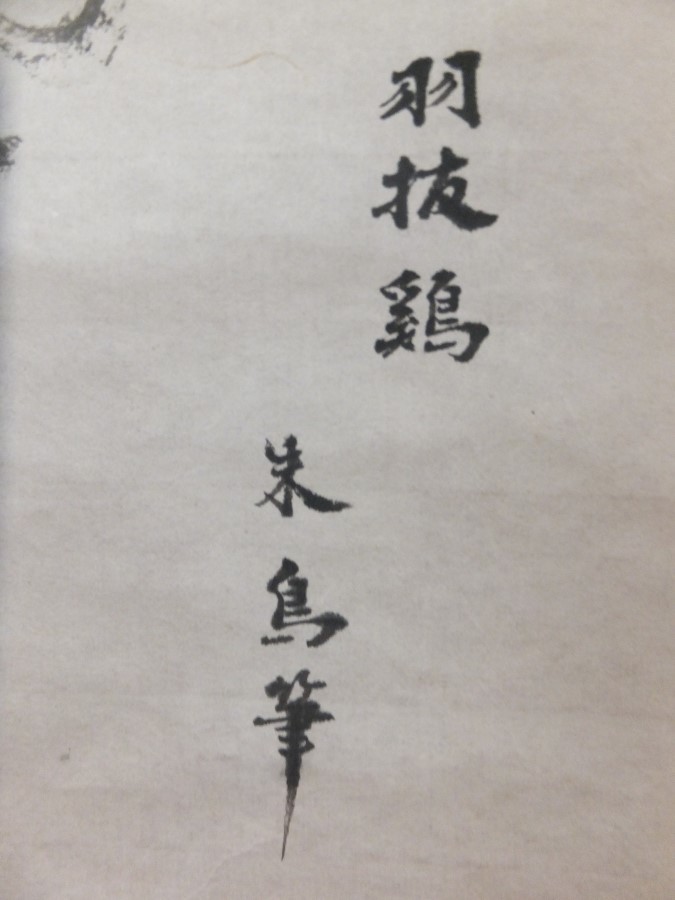 羽抜鷄
朱鳥筆